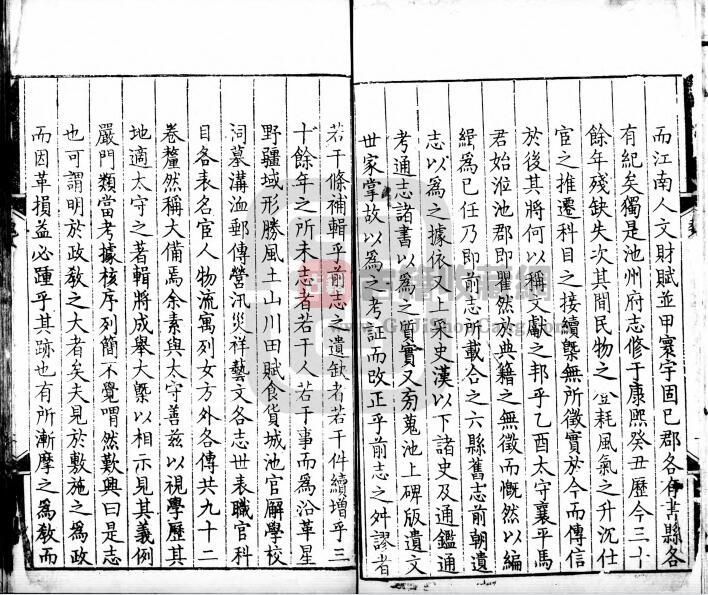 而江南人文財賦並甲寰宇固已郡各有書縣各
有紀矣獨是池州府志修于康熙癸丑歷今三十
餘年殘缺失次其間民物之登耗風氣之升沉仕
宦之推遷科目之接續槩無所徵實於今而傳信
於後其將何以稱文獻之邦乎乙酉太守襄平馬
君始涖池郡即瞿然以典籍之無徵而慨然以編
緝為己任乃即前志所載合之六縣舊志前朝遺
志以為之據依又上采史漢以下諸史及通鑑通
考通志諸書以為之質實又旁蒐池上碑版遺文
世家掌故以為之考証而改正乎前志之舛謬者
若干條補輯乎前志之遺缺者若干件續增乎三
十餘年之所未志者若干人若于事而為沿革星
野疆域形勝風土山川田賦食貨城池官廨學校
祠墓溝洫郵傳營汛災祥藝文各志世表職官科
目各表名宦人物流寓列女方外各傳共九十二
卷釐然稱大備焉余素與太守善茲以視學歷其
地適太守之著輯將成舉大槩以相示見其義例
嚴門類當考據核序列簡不覺喟然歎興曰是志
也可謂明於政教之大者矣夫見於敷施之為政
而因革損益必踵乎其跡也有所漸摩之為教而
www.GujiShouCang.com